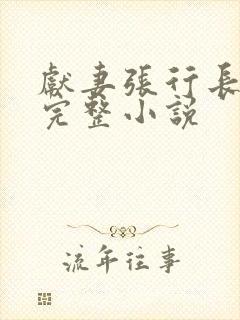 獻妻張行長
完整小說
流年往事